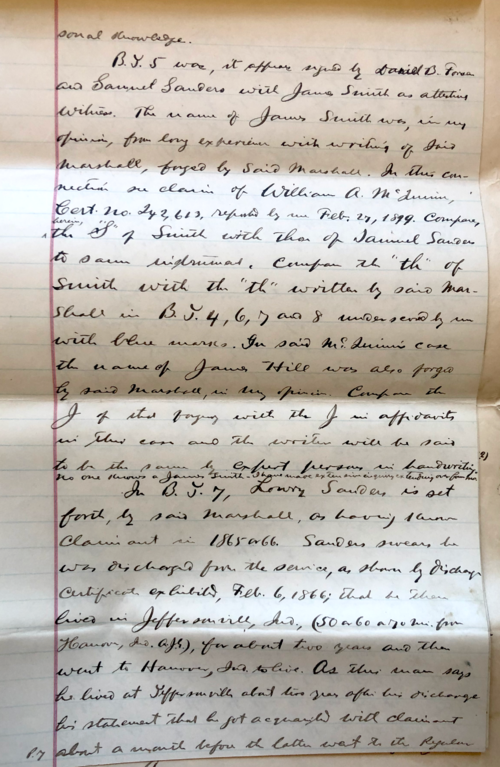 sonal knowledge.
B.J. 5 was, it appears signed by Daniel B.
and Samuel Sanders with James Smith as attesting
witness. The name of James Smith was, in my
opinion, from long experience with writing of said
Marshall, forged by said Marshall. In this con-
nection see claim of William A. McQuinn,
Cert. no. 242,613, reported by me Feb. 27, 1899. Compare,
the "S" of Smith with that of Samuel Sanders
to same instrument. Compare the "th" of
Smith with the "th" written by said Mar-
shall in B.J. 4, 6, 7 and 8 underscored by me
with blue marks. In said McQuinn's case
the name of James Hill was also forged
by said Marshall, in my opinion. Compare the
J of that forgery with the J in affidavits
in this case and the written will be said
to be the same by expert persons in handwriting.
no one knows a James Smith.
2)
In B.J. 7, Lowry Sanders is set
forth, by said Marshall, as having known
claimant in 1865 or 66. Sanders swears he
was discharged from the service, as shown by discharge
certificate exhibited, Feb. 6, 1866; that he then
lived in Jeffersonville, Ind., (50 or 60 or 70 mi. from
Hanover, Ind.), for about two years and then
went to Hanover, Ind. to live. As this man says
he lived at Jeffersonville about two years after his discharge
his statement that he got acquainted with claimant
about a month before the latter went to the Regular
P. 7